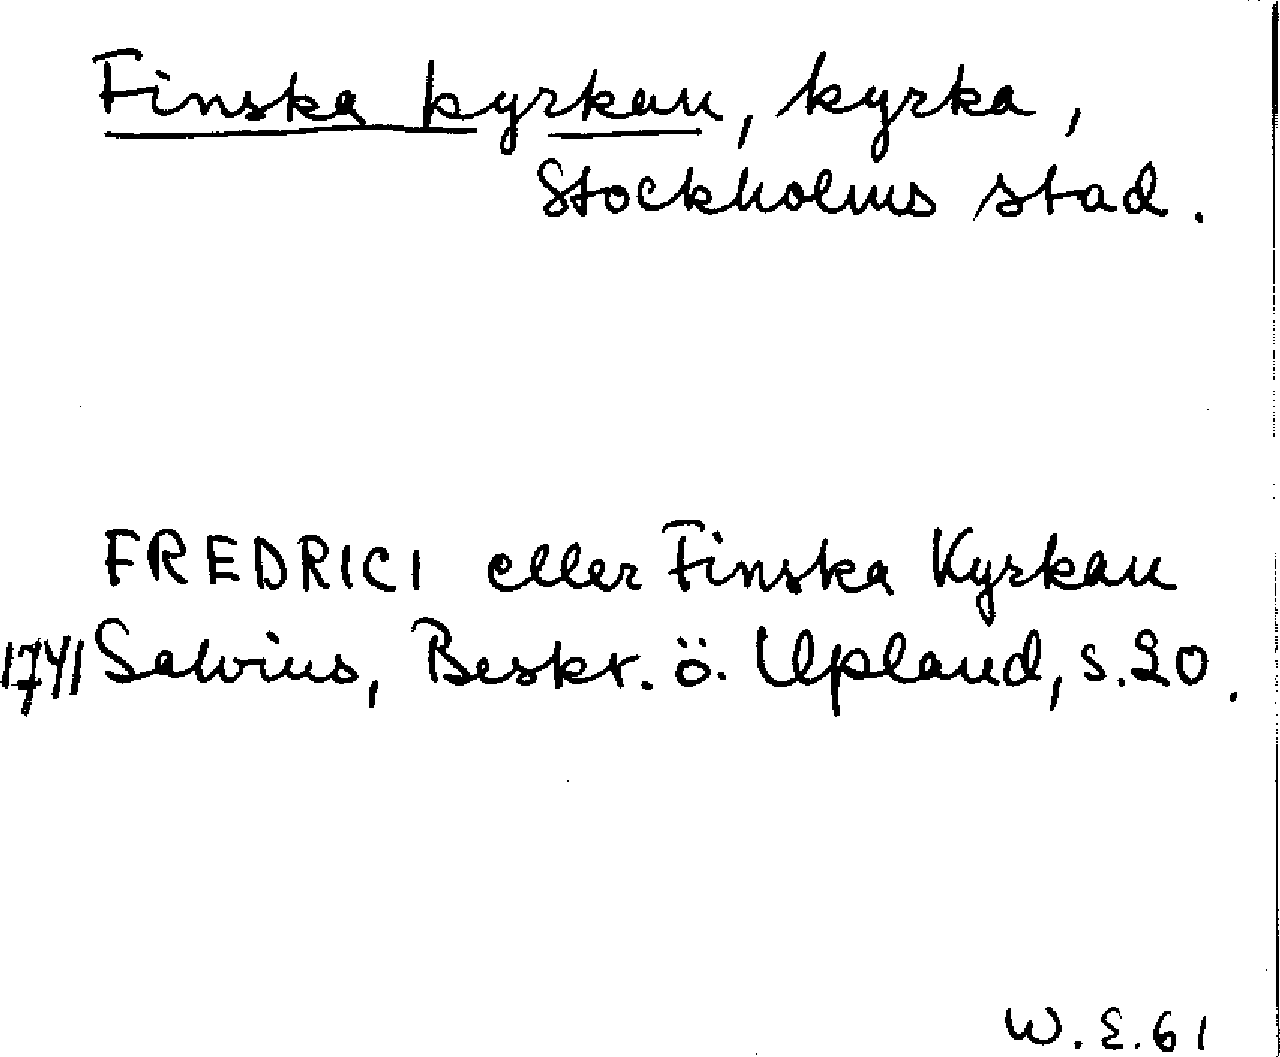 Finska kyrkan, kyrka,
Stockholms stad.
FREDRICI eller Finska Kyrkan
1741 Salvius, Beskr. ö. Upland, s. 20.
W. E. 61